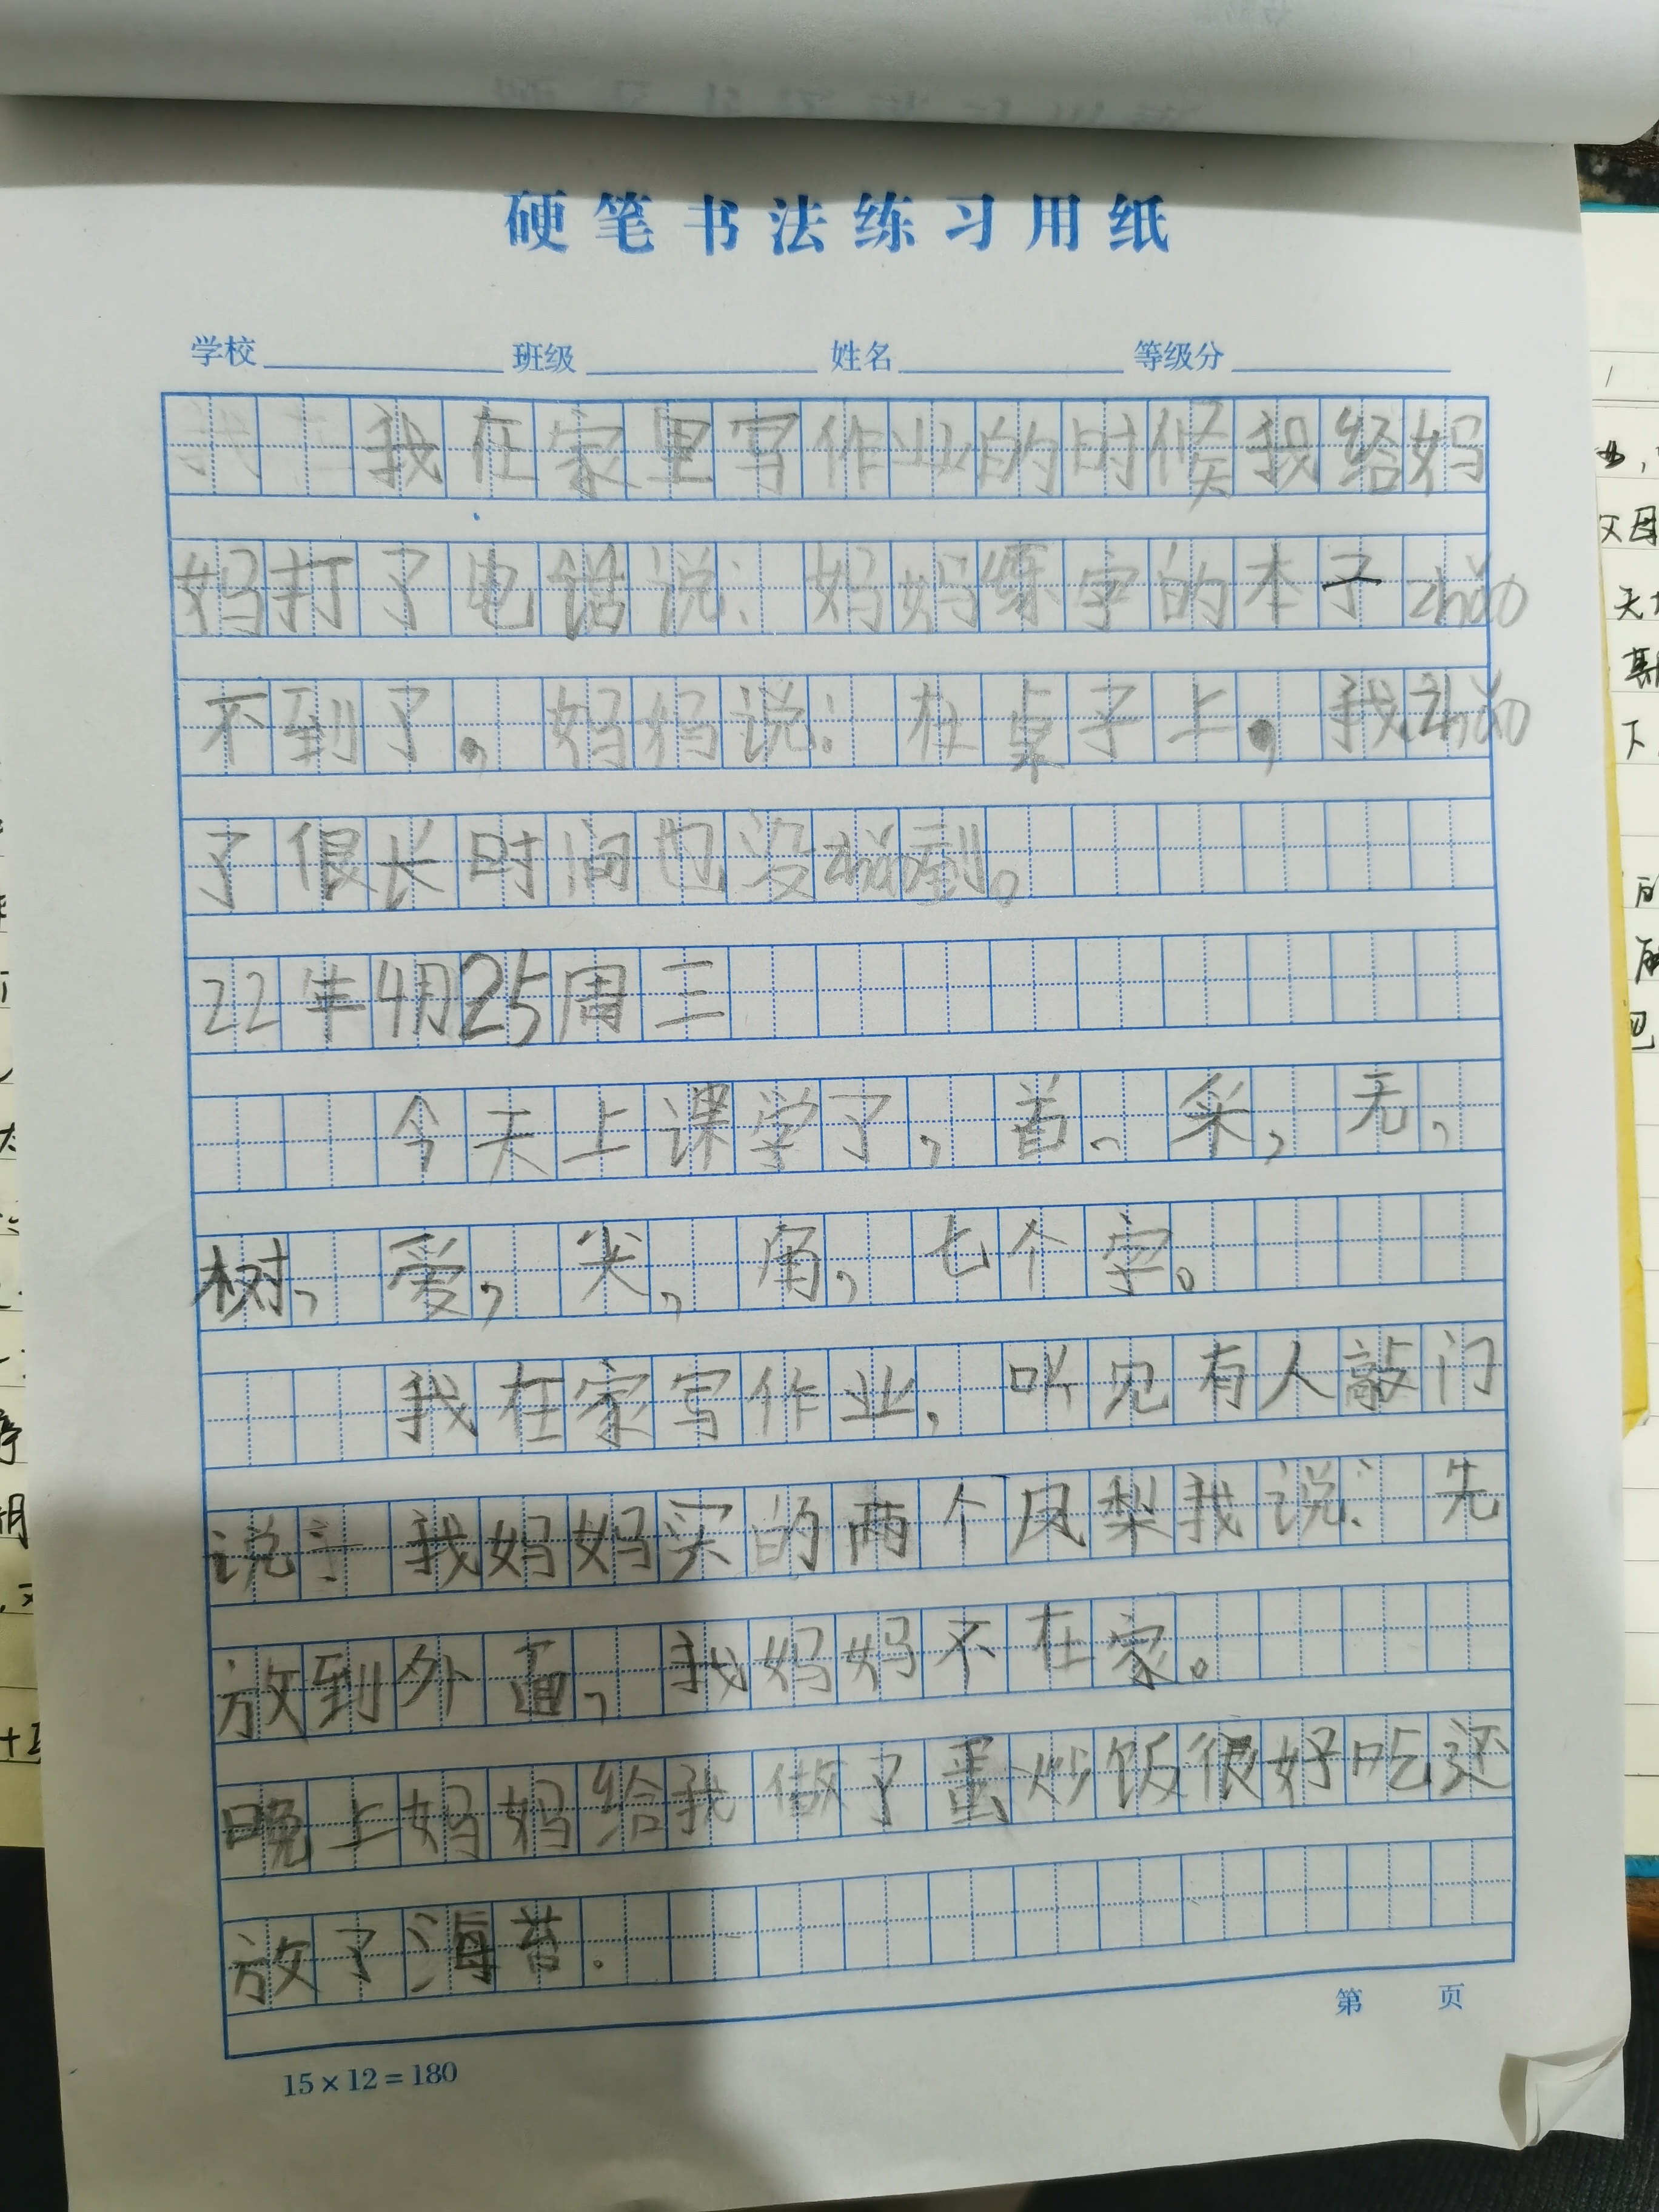 硬笔书法练习用纸
学校 班级 姓名 等级分
我在家里写作业的时候我给妈
妈打了电话说:妈妈练字的本子zhǎo
不到了,妈妈说:在桌子上,我zhǎo
了很长时间也没zhǎo到。
22年4月25周三
今天上课学了,首、采,无,
树,爱,尖,角,七个字。
我在家写作业,听见有人敲门
说:我妈妈买的两个凤梨我说:先
放到外面,我妈妈不在家。
晚上妈妈给我做了蛋炒饭很好吃还
放了海苔.
第 页
15×12=180